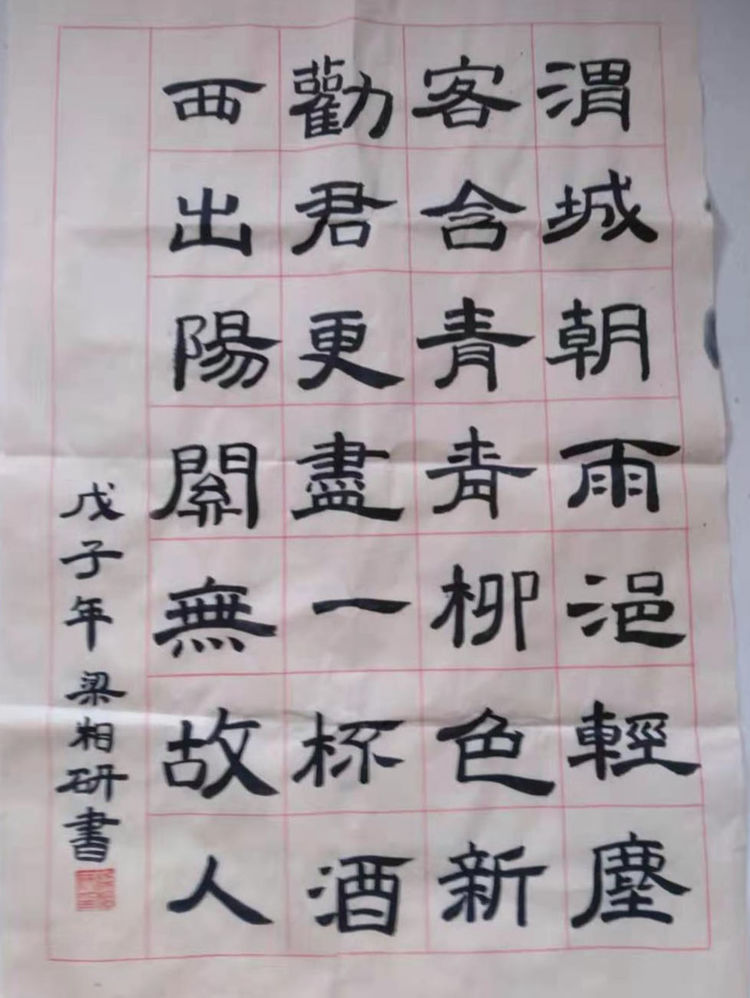 渭城朝雨浥輕塵
客含青青柳色新
勸君更盡一杯酒
西出陽關無故人
戊子年梁相研書